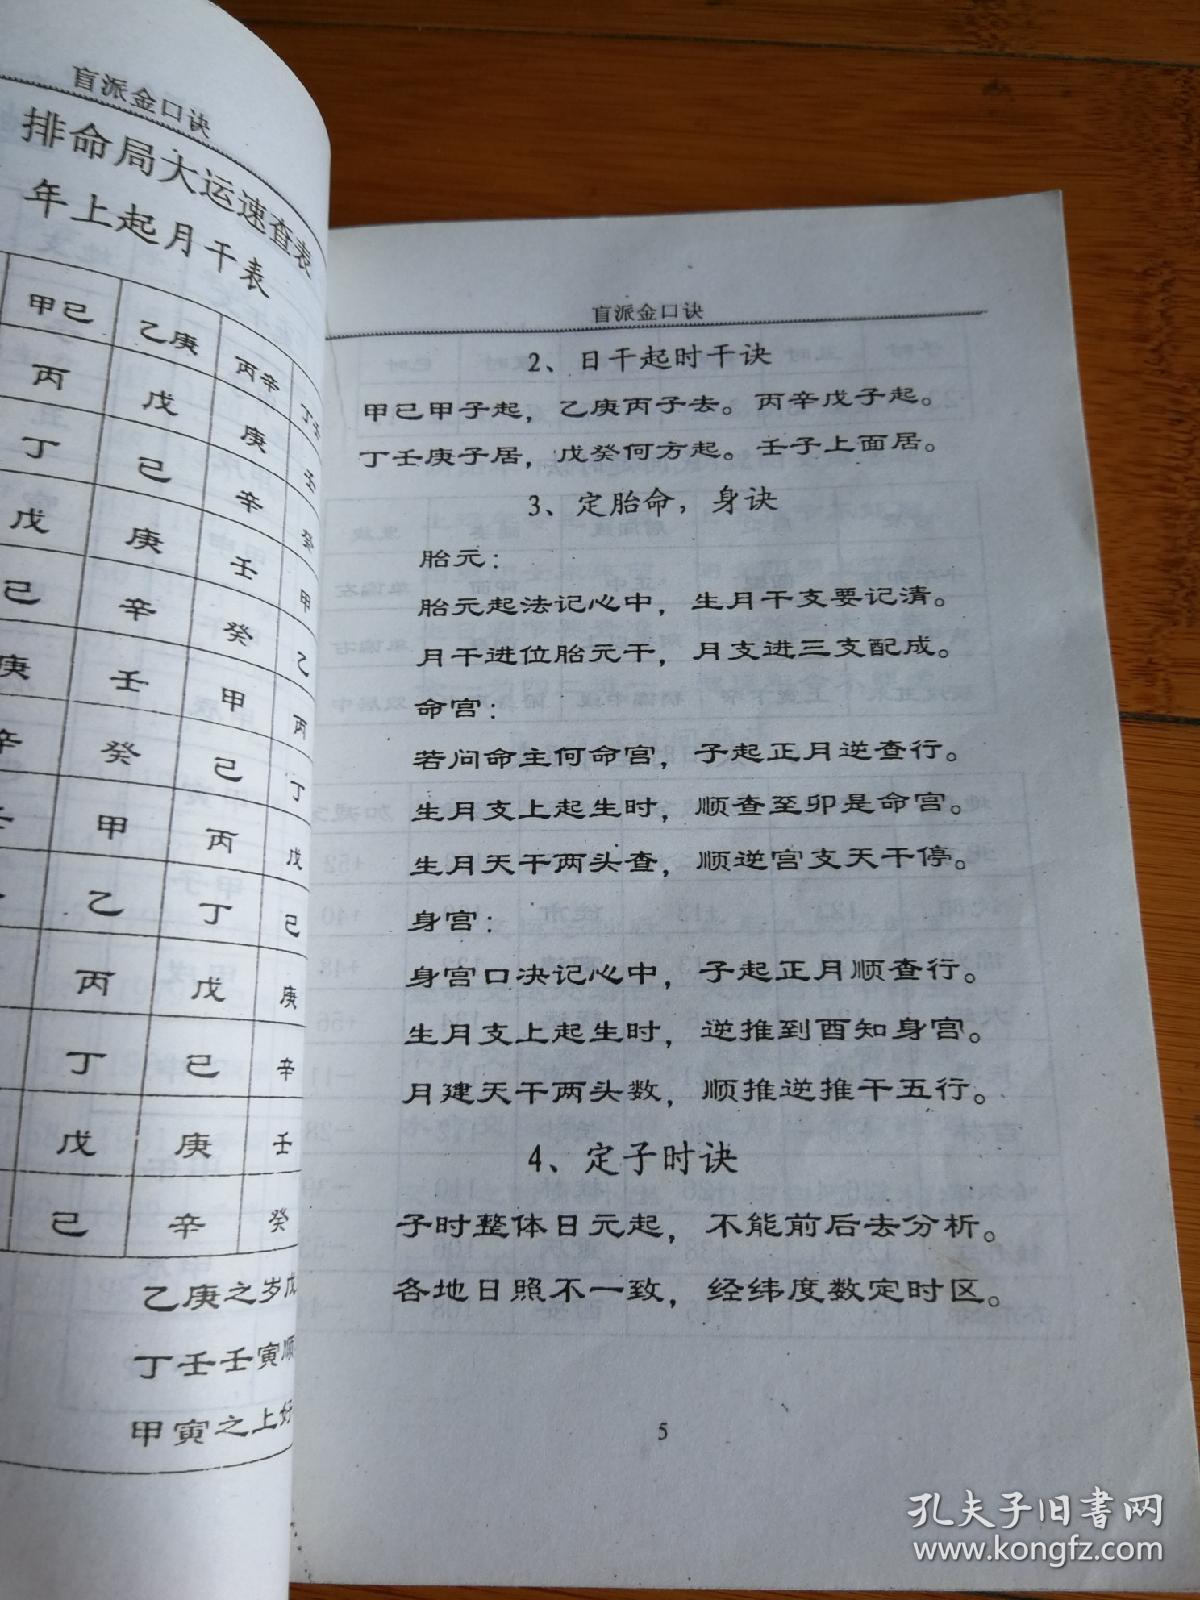 盲派金口诀
排命局大运速查表
年上起月干表
甲己 乙庚 丙辛
丙 戊 庚 壬
丁 己 辛 癸
戊 庚 壬 甲
己 辛 癸 乙
庚 壬 甲 丙
辛 癸 己 丁
甲 丙 戊
乙 丁 己
丙 戊 庚
丁 己 辛
戊 庚 壬
己 辛 癸
乙庚之岁戊
丁壬壬寅顺
甲寅之上好
盲派金口诀
2、日干起时干诀
甲己甲子起，乙庚丙子去。丙辛戊子起。
丁壬庚子居，戊癸何方起。壬子上面居。
3、定胎命，身诀
胎元：
胎元起法记心中，生月干支要记清。
月干进位胎元干，月支进三支配成。
命宫：
若问命主何命宫，子起正月逆查行。
生月支上起生时，顺查至卯是命宫。
生月天干两头查，顺逆宫支天干停。
身宫：
身宫口决记心中，子起正月顺查行。
生月支上起生时，逆推到酉知身宫。
月建天干两头数，顺推逆推干五行。
4、定子时诀
子时整体日元起，不能前后去分析。
各地日照不一致，经纬度数定时区。
5
孔夫子旧书网
www.kongfz.com